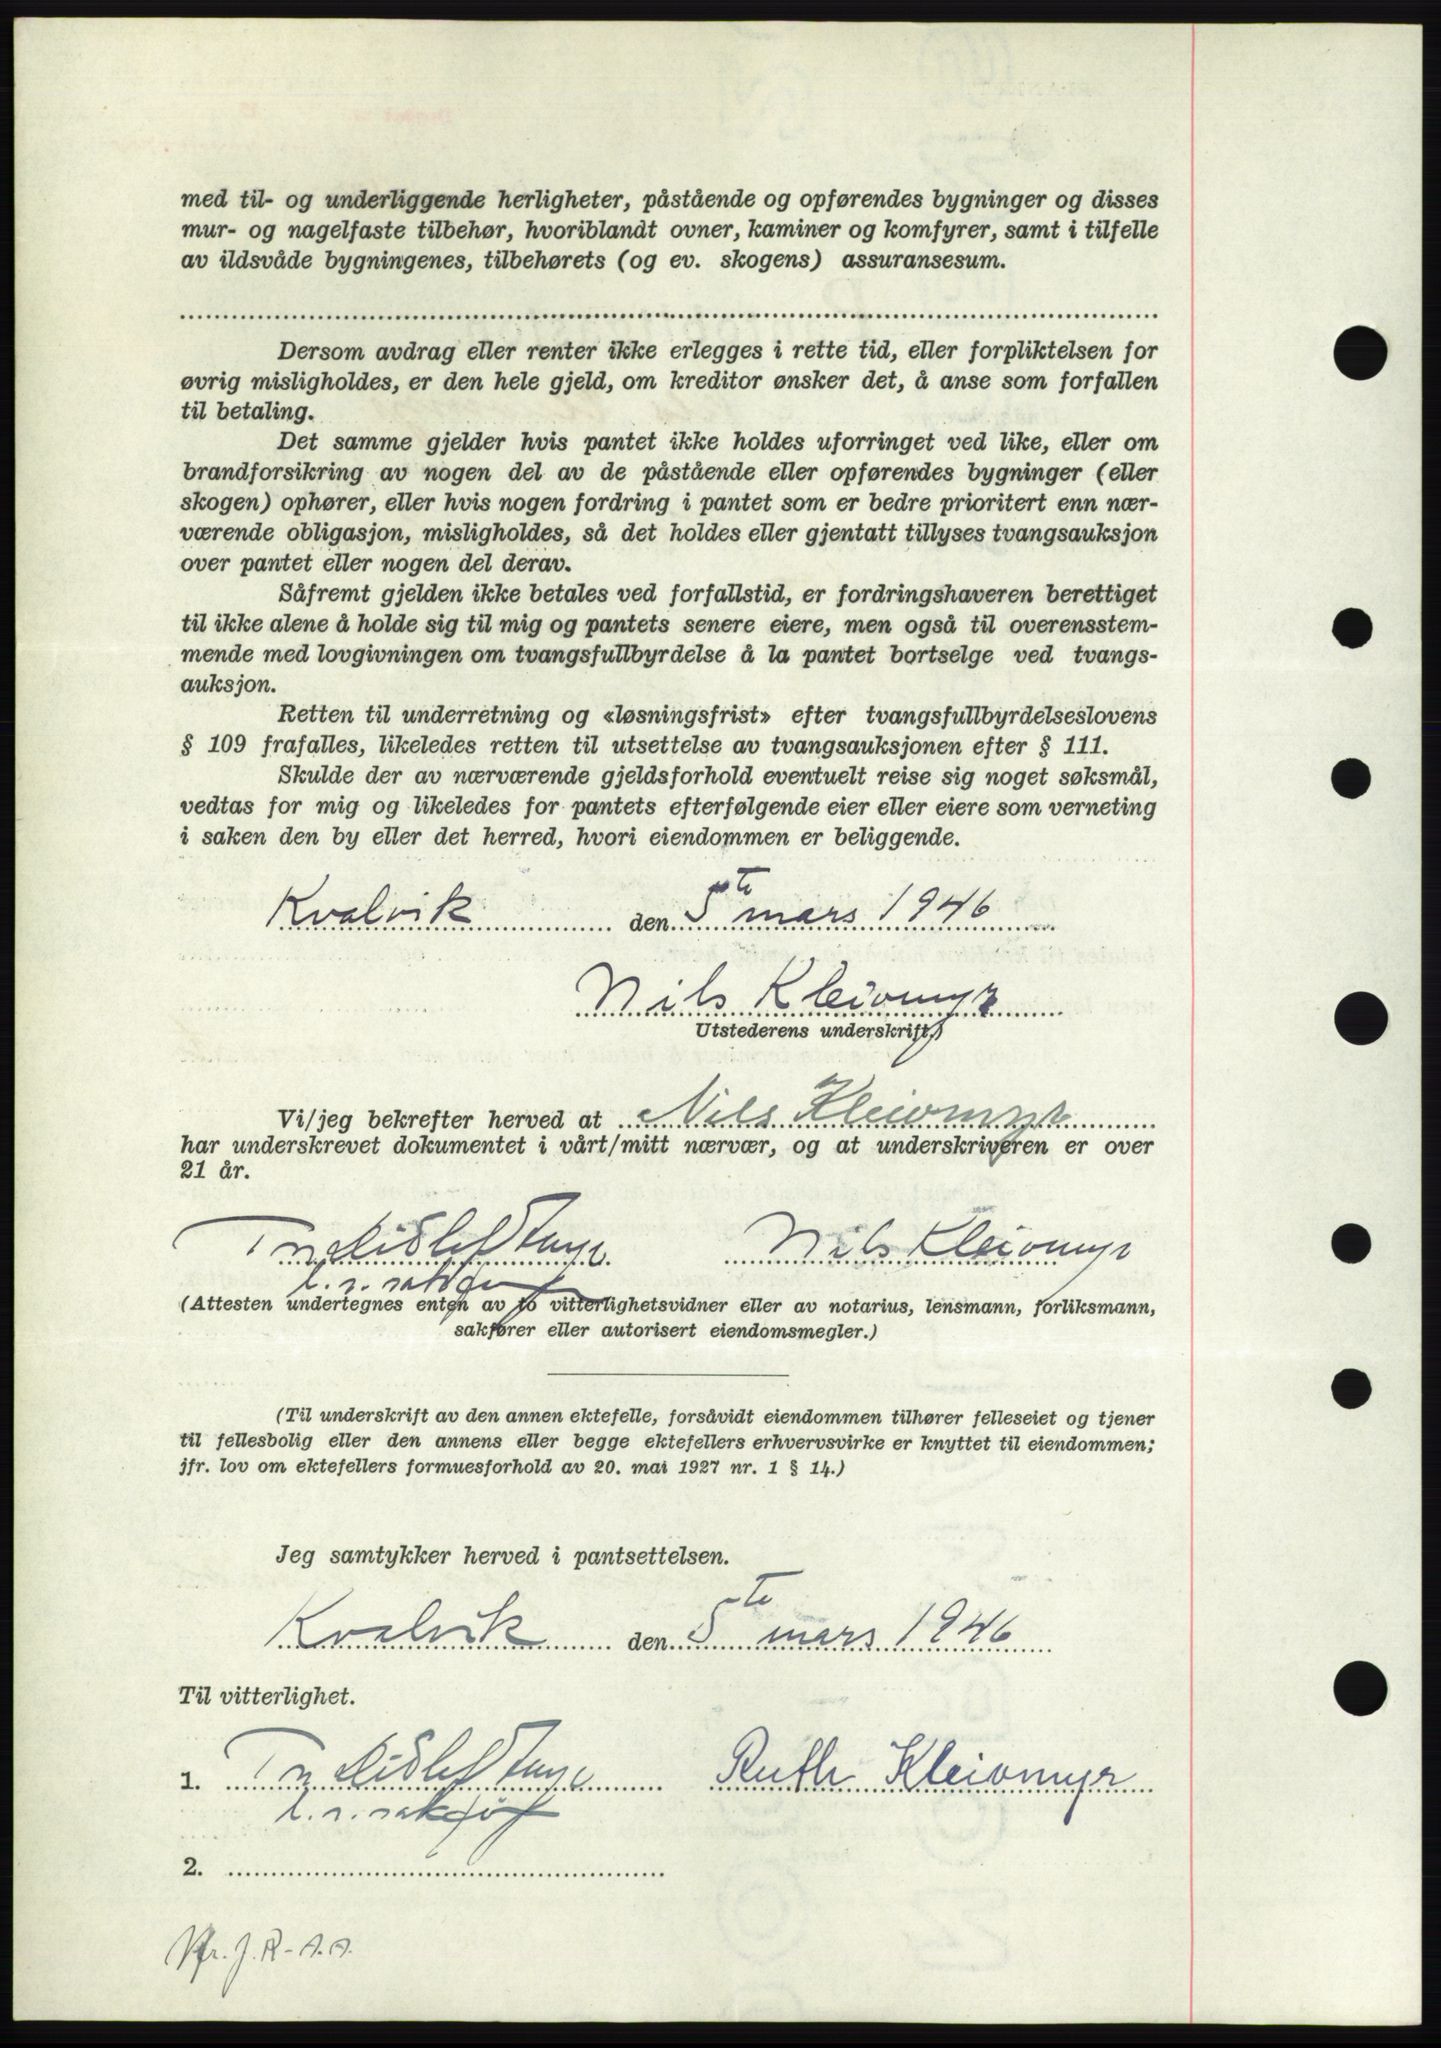 med til- og underliggende herligheter, påstående og opførendes bygninger og disses
mur- og nagelfaste tilbehør, hvoriblandt ovner, kaminer og komfyrer, samt i tilfelle
av ildsvåde bygningenes, tilbehørets (og ev. skogens) assuransesum.
Dersom avdrag eller renter ikke erlegges i rette tid, eller forpliktelsen for
øvrig misligholdes, er den hele gjeld, om kreditor ønsker det, å anse som forfallen
til betaling.
Det samme gjelder hvis pantet ikke holdes uforringet ved like, eller om
brandforsikring av nogen del av de påstående eller opførendes bygninger (eller
skogen) ophører, eller hvis nogen fordring i pantet som er bedre prioritert enn nær-
værende obligasjon, misligholdes, så det holdes eller gjentatt tillyses tvangsauksjon
over pantet eller nogen del derav.
Såfremt gjelden ikke betales ved forfallstid, er fordringshaveren berettiget
til ikke alene å holde sig til mig og pantets senere eiere, men også til overensstem-
mende med lovgivningen om tvangsfullbyrdelse å la pantet bortselge ved tvangs-
auksjon.
Retten til underretning og «løsningsfrist» efter tvangsfullbyrdelseslovens
§ 109 frafalles, likeledes retten til utsettelse av tvangsauksjonen efter § 111.
Skulde der av nærværende gjeldsforhold eventuelt reise sig noget søksmål,
vedtas for mig og likeledes for pantets efterfølgende eier eller eiere som verneting
i saken den by eller det herred, hvori eiendommen er beliggende.
Kvalvik den 5te mars 1946
Nils Kleivmyr
Utstederens underskrift.)
Vi/jeg bekrefter herved at Nils Kleivmyr
har underskrevet dokumentet i vårt/mitt nærvær, og at underskriveren er over
21 år.
Nils Kleivmyr
l.r. sakfør
(Attesten undertegnes enten av to vitterlighetsvidner eller av notarius, lensmann, forliksmann,
sakfører eller autorisert eiendomsmegler.)
(Til underskrift av den annen ektefelle, forsåvidt eiendommen tilhører felleseiet og tjener
til fellesbolig eller den annens eller begge ektefellers erhvervsvirke er knyttet til eiendommen;
jfr. lov om ektefellers formuesforhold av 20. mai 1927 nr. 1 § 14.)
Jeg samtykker herved i pantsettelsen.
Kvalvik den 5te mars 1946
Til vitterlighet.
1. Ruth Kleivmyr
l.r. sakfør
2.